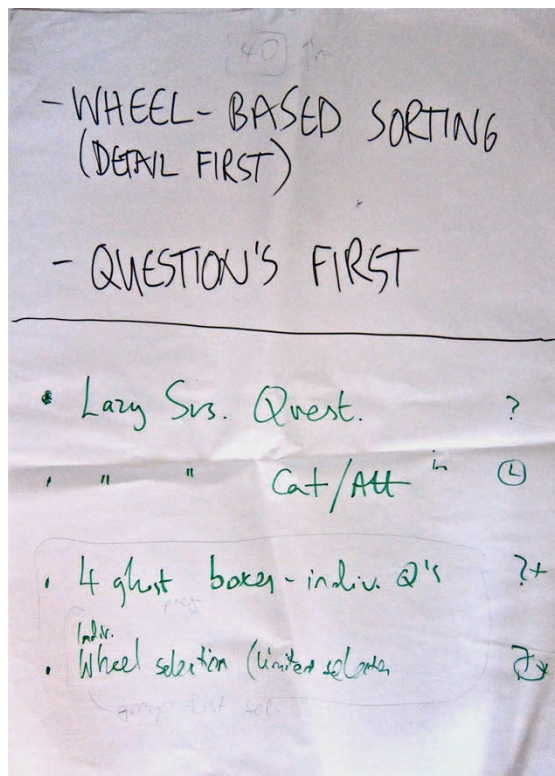 40
- WHEEL-BASED SORTING
(DETAIL FIRST)
- QUESTION'S FIRST
• Lazy Sus. Quest. ?
• " " Cat/Att in
• 4 ghost boxes - indiv. Q's ?+
Indiv.
• Wheel selection (limited
group list sel.